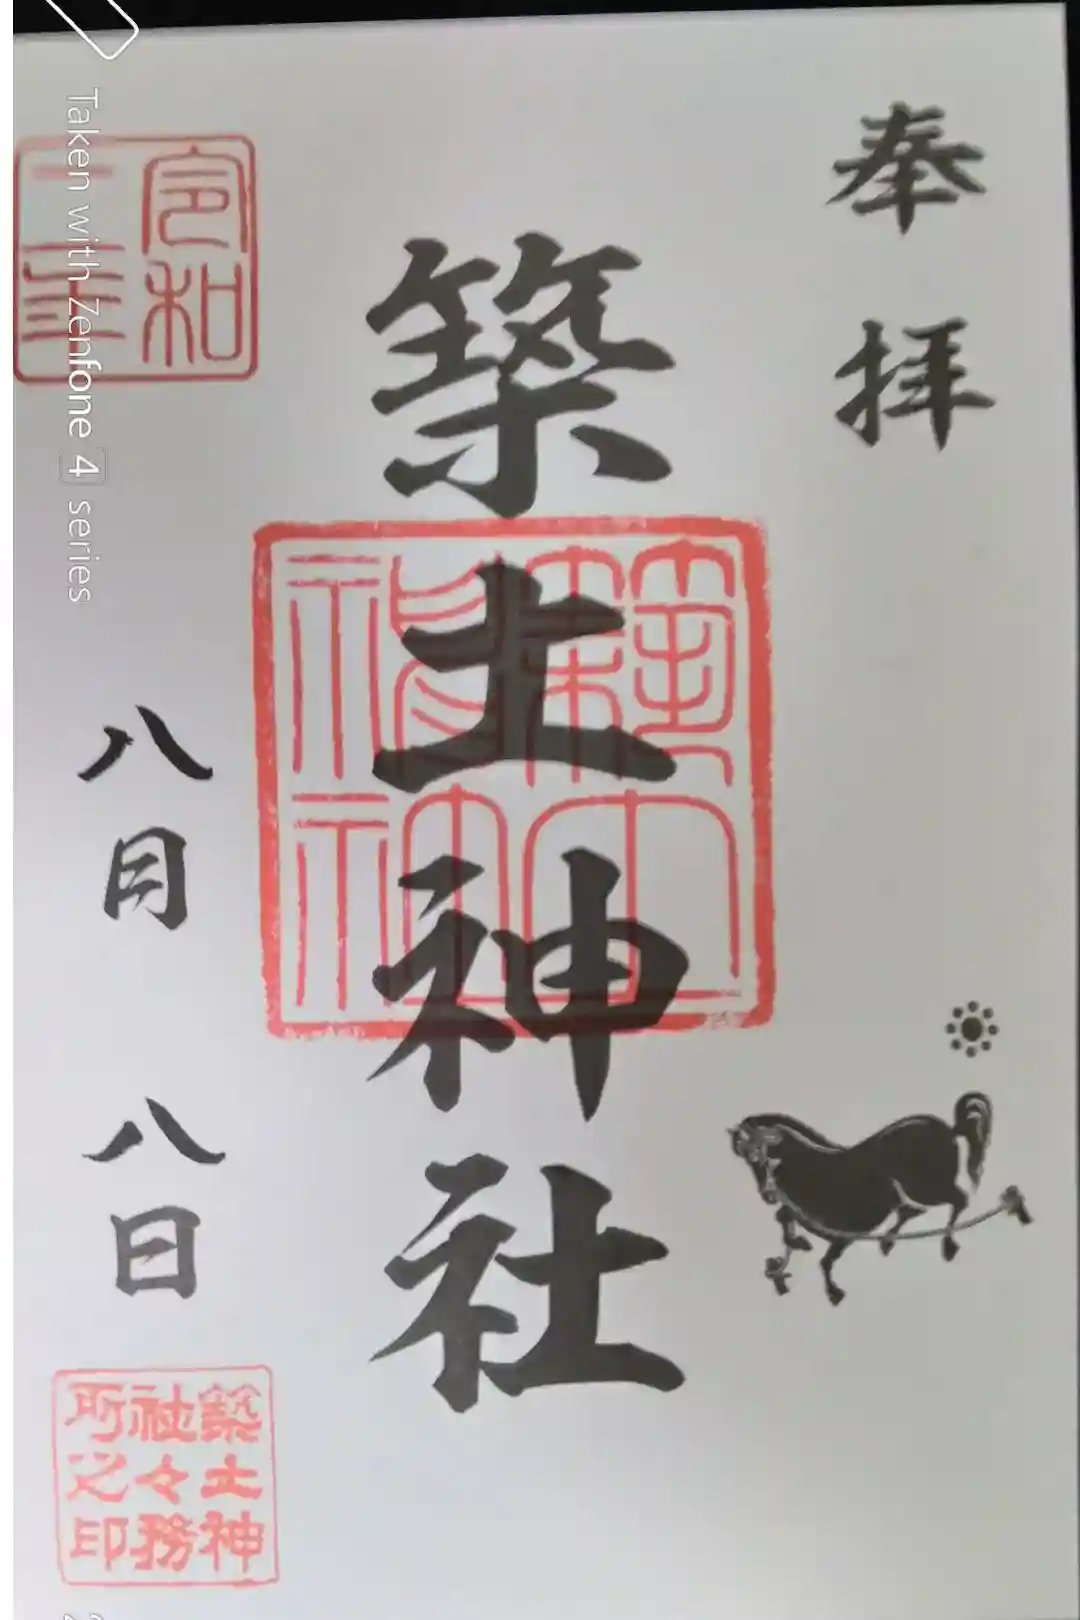 奉拝
築土神社
築土神社
令和
二年
八月八日
築土神
社々務
所之印
Taken with Zenfone 4 series